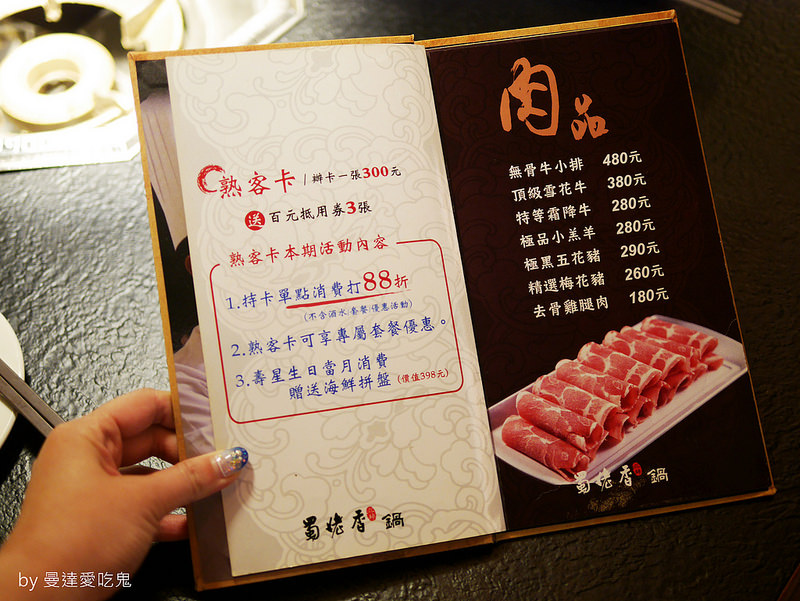 熟客卡/辦卡一張300元
送 百元抵用券3張
熟客卡本期活動內容
1.持卡單點消費打88折
(不含酒水/套餐/優惠活動)
2.熟客卡可享專屬套餐優惠。
3.壽星生日當月消費
贈送海鮮拼盤(價值398元)
蜀姥香 鍋
肉品
無骨牛小排 480元
頂級雪花牛 380元
特等霜降牛 280元
極品小羔羊 280元
極黑五花豬 290元
精選梅花豬 260元
去骨雞腿肉 180元
蜀姥香 鍋
by 曼達愛吃鬼